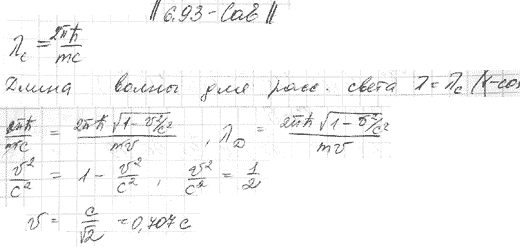 || 6.93 - Сав ||
λc = 2πħ/mc
Длина волны для расс. света λ = λc (1-cos
2πħ/mc = 2πħ√(1-v²/c²)/mv , λD = 2πħ√(1-v²/c²)/mv
v²/c² = 1 - v²/c² , v²/c² = 1/2
v = c/√2 = 0,707 c